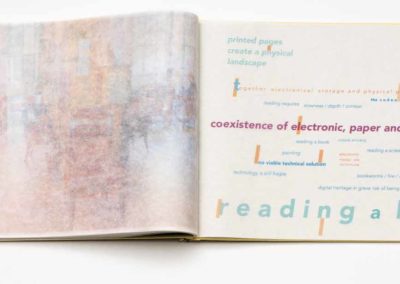 printed pages
create a physical
landscape
together electronical storage and physical
coexistence of electronic, paper and
reading requires slowness / depth / immersion
reading a book
reading a screen
painting
no visible technical solution
technology is still fragile
bookworms / fire /
digital heritage in grave risk of being
reading a